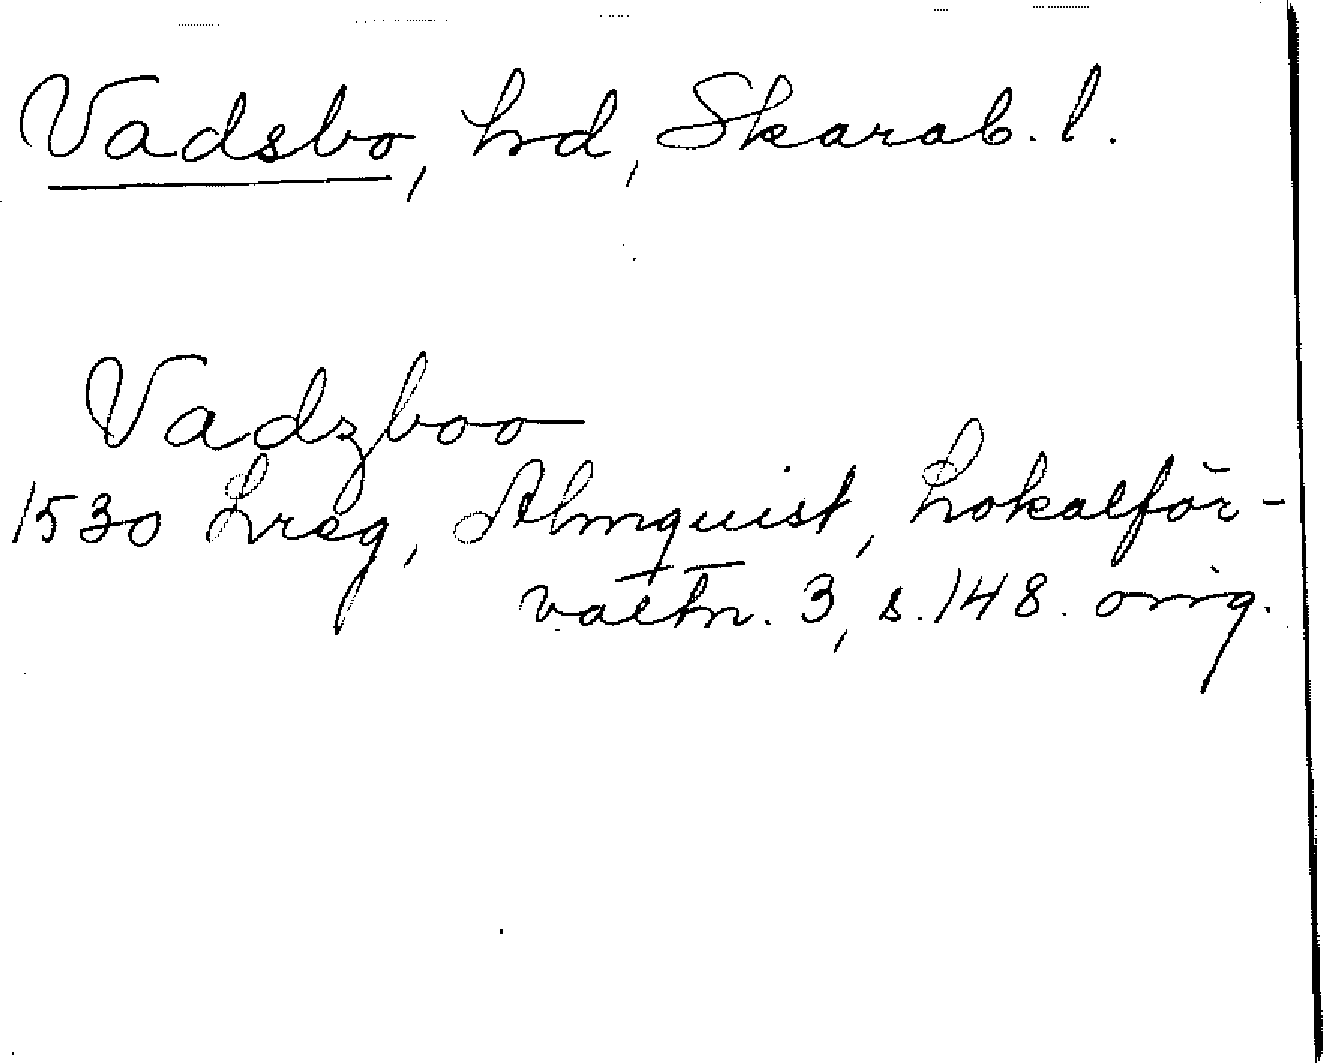 Vadsbo, hd, Skarab. l.
Vadzboo
1530 Lreg, Almquist, Lokalför-
valtn. 3, s. 148. orig.